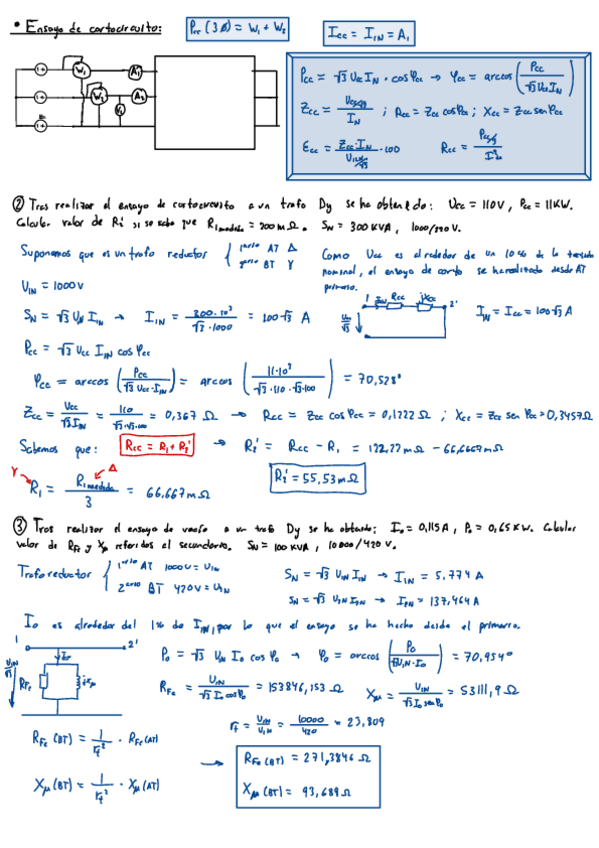 • Ensayo de cortocircuito: Pcc (3Ø) = W1 + W2 Icc = I1N = A1
W1 A1
W2 A2
V1
Pcc = √3 Ucc I1N · cosφcc → φcc = arccos (Pcc / √3 Ucc I1N)
Zcc = Ucc/√3 / IN ; Rcc = Zcc cosφcc ; Xcc = Zcc senφcc
Ecc = Zcc · I1N / U1N/√3 · 100 Rcc = Pcc/3 / I²
② Tras realizar el ensayo de cortocircuito a un trafo Dy se ha obtenido: Ucc = 110V, Pcc = 11KW.
Calcular valor de R2' si se sabe que R1medida = 200 mΩ. SN = 300 KVA,
Suponemos que es un trafo reductor { 1ario AT Δ
2ario BT Y
Como Ucc es alrededor de un 10% de la tensión
nominal, el ensayo de corto se ha realizado desde AT
primario.
U1N = 1000 V
SN = √3 UN I1N → I1N = 300·10³ / √3·1000 = 100√3 A
1 Rcc jXcc 2'
IN = Icc = 100√3 A
Pcc = √3 Ucc I1N cosφcc
φcc = arccos (Pcc / √3 Ucc·I1N) = arccos (11·10³ / √3·110·√3·100) = 70,528°
Zcc = Ucc / √3 I1N = 110 / √3·√3·100 = 0,367 Ω → Rcc = Zcc cosφcc = 0,1222 Ω ; Xcc = Zcc sen φcc = 0,3457Ω
Sabemos que: Rcc = R1 + R2' → R2' = Rcc - R1 = 122,22 mΩ - 66,667 mΩ
Y Δ
R1 = R1medida / 3 = 66,667 mΩ
R2' = 55,53 mΩ
③ Tras realizar el ensayo de vacío a un trafo Dy se ha obtenido: I0 = 0,115 A, P0 = 0,65 KW. Calcular
valor de RFe y Xμ referidos al secundario. SN = 100 KVA, 10000/420 V.
Trafo reductor { 1ario AT 1000 V = U1N
2ario BT 420 V = U2N
SN = √3 U1N I1N → I1N = 5,774 A
SN = √3 U2N I2N → I2N = 137,464 A
I0 es alrededor del 1% de I1N, por lo que el ensayo se ha hecho desde el primario.
1 2'
U1N/√3 RFe jXμ
P0 = √3 U1N I0 cos φ0 → φ0 = arccos (P0 / √3 U1N·I0) = 70,954°
RFe = U1N / √3 I0 cosφ0 = 153846,153 Ω Xμ = U1N / √3 I0 senφ0 = 53111,9 Ω
rt = U1N / U2N = 10000 / 420 = 23,809
RFe (BT) = 1/rt² · RFe (AT)
Xμ (BT) = 1/rt² · Xμ (AT)
→ RFe (BT) = 271,3846 Ω
Xμ (BT) = 93,689 Ω